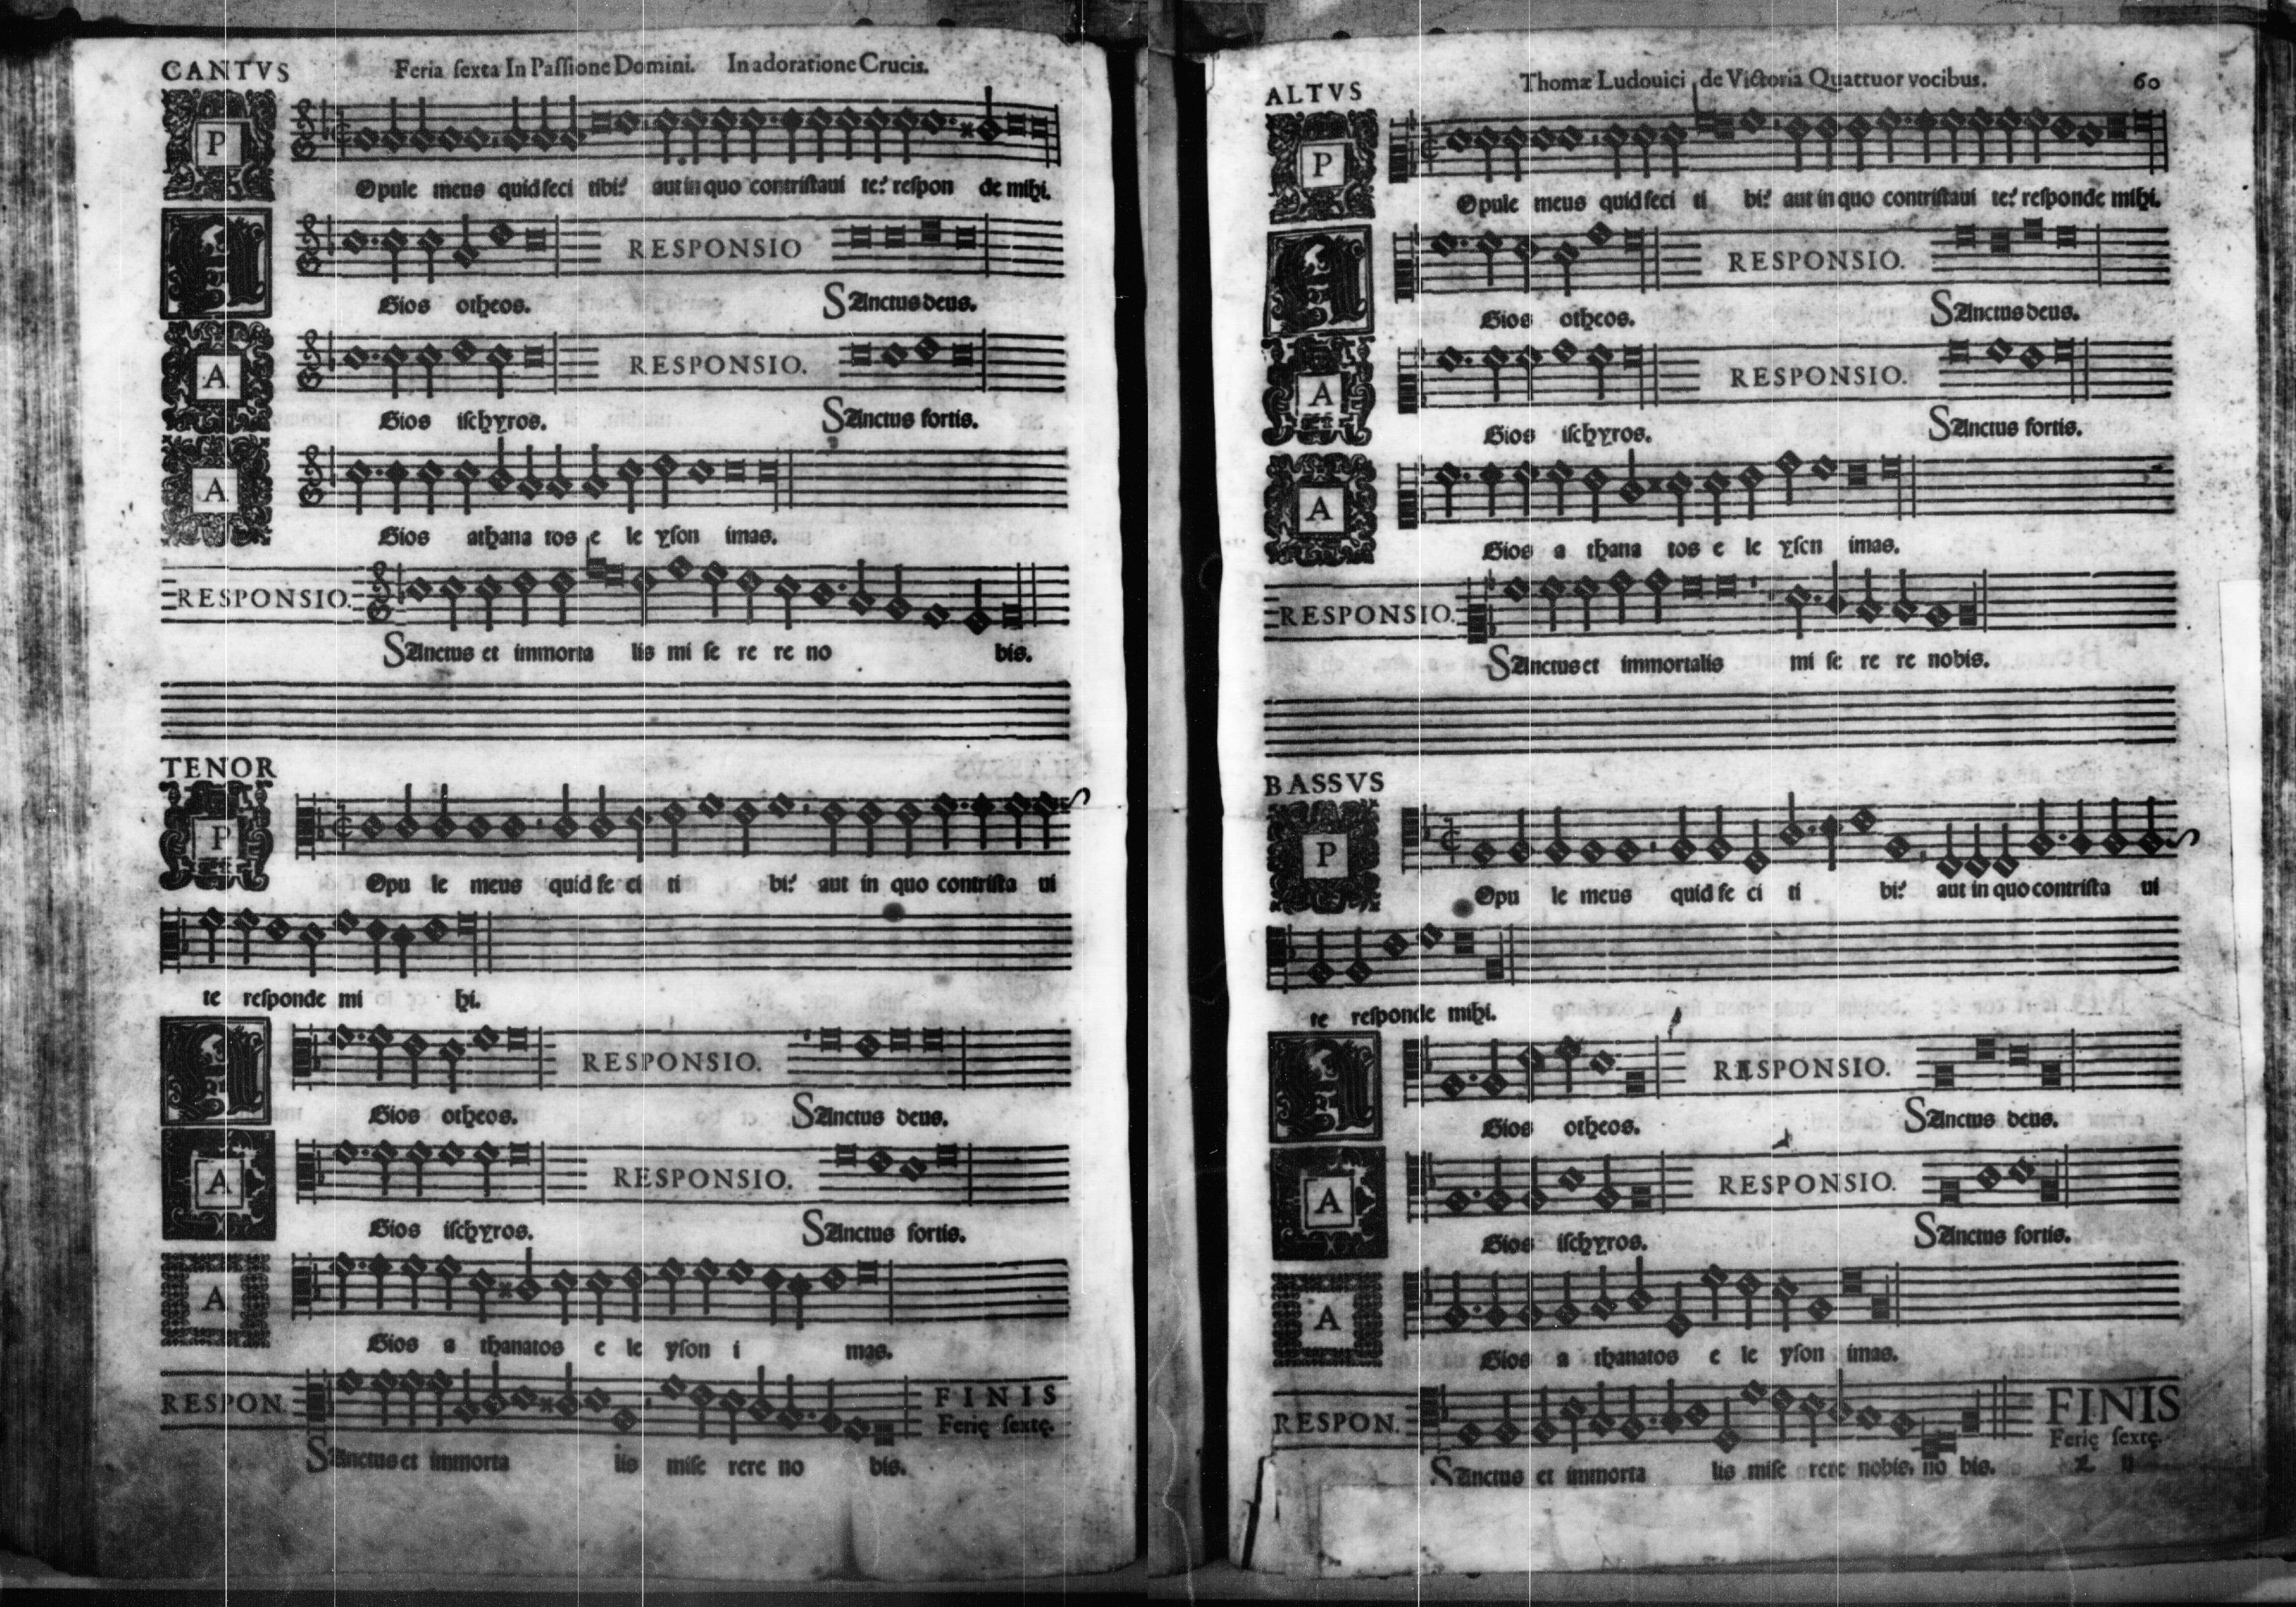 CANTVS Feria sexta In Passione Domini. In adoratione Crucis.
P Opule meus quid feci tibi? aut in quo contristaui te? respon de mihi.
A RESPONSIO
Gios otheos. SAnctus deus.
A RESPONSIO.
Gios ischyros. SAnctus fortis.
A
Gios athana tos e le yson imas.
RESPONSIO.
SAnctus et immorta lis mi se re re no bis.
TENOR
P
Opu le meus quid fe ci ti bi? aut in quo contrista ui
te responde mi hi.
A RESPONSIO.
Gios otheos. SAnctus deus.
A RESPONSIO.
Gios ischyros. SAnctus fortis.
A
Gios a thanatos e le yson i mas.
RESPON. FINIS
Ferię sextę.
SAnctus et immorta lis mise rere no bis.
ALTVS Thomæ Ludouici de Victoria Quattuor vocibus. 60
P
Opule meus quid feci ti bi? aut in quo contristaui te? responde mihi.
A RESPONSIO.
Gios otheos. SAnctus deus.
A RESPONSIO.
Gios ischyros. SAnctus fortis.
A
Gios a thana tos e le yson imas.
RESPONSIO.
SAnctus et immortalis mi se re re nobis.
BASSVS
P
Opu le meus quid fe ci ti bi? aut in quo contrista ui
te responde mihi.
A RESPONSIO.
Gios otheos. SAnctus deus.
A RESPONSIO.
Gios ischyros. SAnctus fortis.
A
Gios a thanatos e le yson imas.
RESPON. FINIS
Ferię sextę.
SAnctus et immorta lis mise rere nobis. no bis.